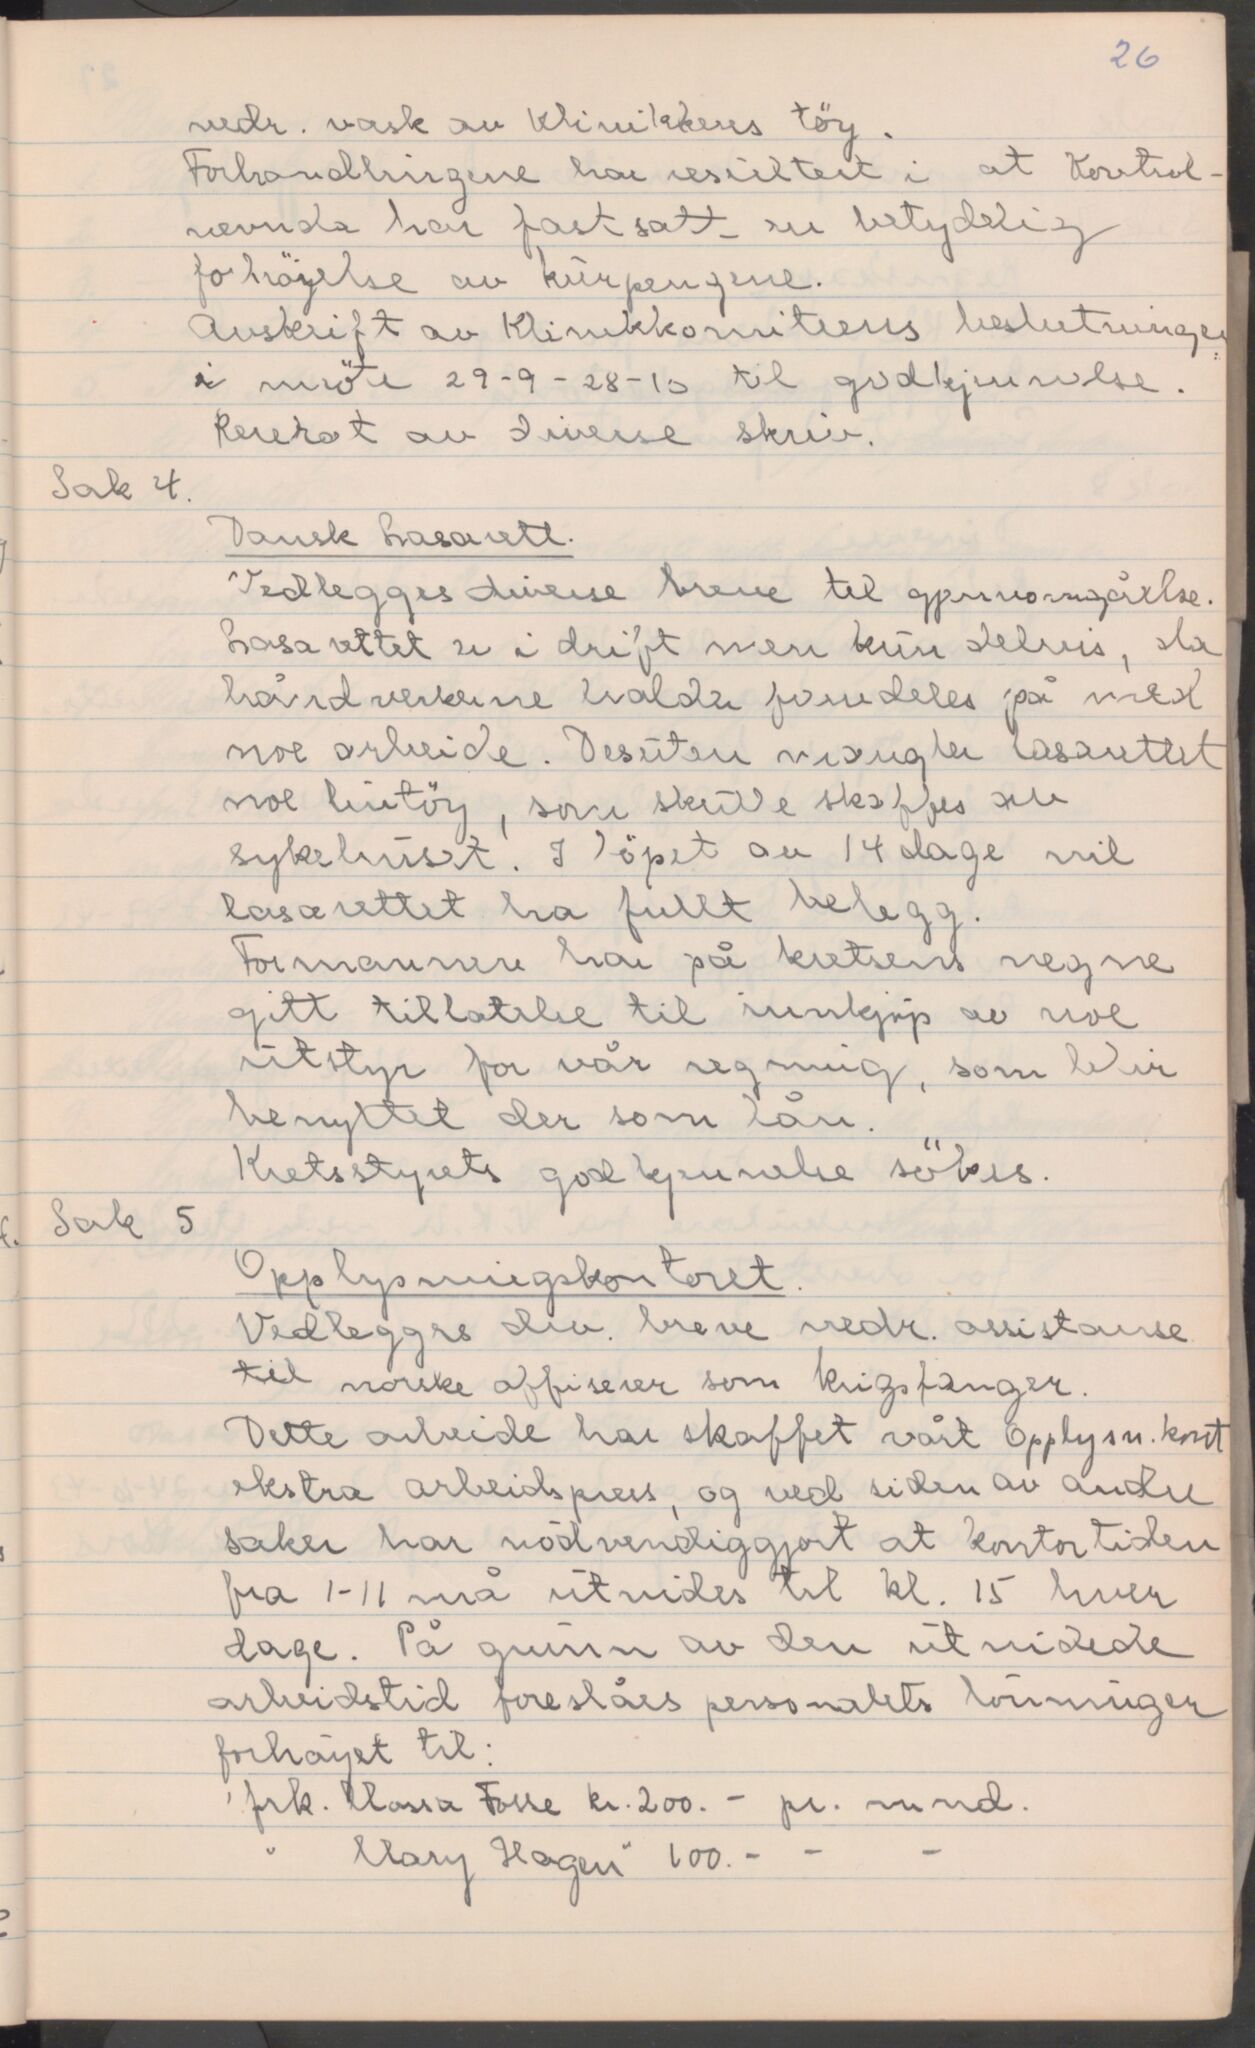 26
vedr. vask av Klinikkens töy.
Forhandlingene har resultert i at Kontrol-
nevnda har fastsatt en betydelig
forhöyelse av kurpengene.
Avskrift av Klinikkomiteens beslutninger
i möte 29-9 - 28-10 til godkjennelse.
Referat av diverse skriv.
Sak 4.
Dansk Lasarett.
Vedlegges diverse breve til gjennomgåelse.
Lasarettet er i drift men kun delvis, da
håndverkerne holder fremdeles på med
noe arbeide. Desuten mangler lasarettet
noe lintöy, som skulle skaffes av
sykehuset. I löpet av 14 dage vil
lasarettet ha fullt belegg.
Formannen har på kretsens vegne
gitt tillatelse til innkjöp av noe
utstyr for vår regning, som blir
benyttet der som lån.
Kretsstyrets godkjennelse sökes.
Sak 5
Opplysningskontoret.
Vedlegges div. breve vedr. assistanse
til norske offiserer som krigsfanger.
Dette arbeide har skaffet vårt Opplysn. kont
ekstra arbeidspress, og ved siden av andre
saker har nödvendiggjort at kontortiden
fra 1-11 må utvides til kl. 15 hver
dage. På grunn av den utvidede
arbeidstid foreslåes personalets lönninger
forhöyet til:
frk. Massa Fosse kr. 200.- pr. mnd.
" Mary Hagen " 100.- - -